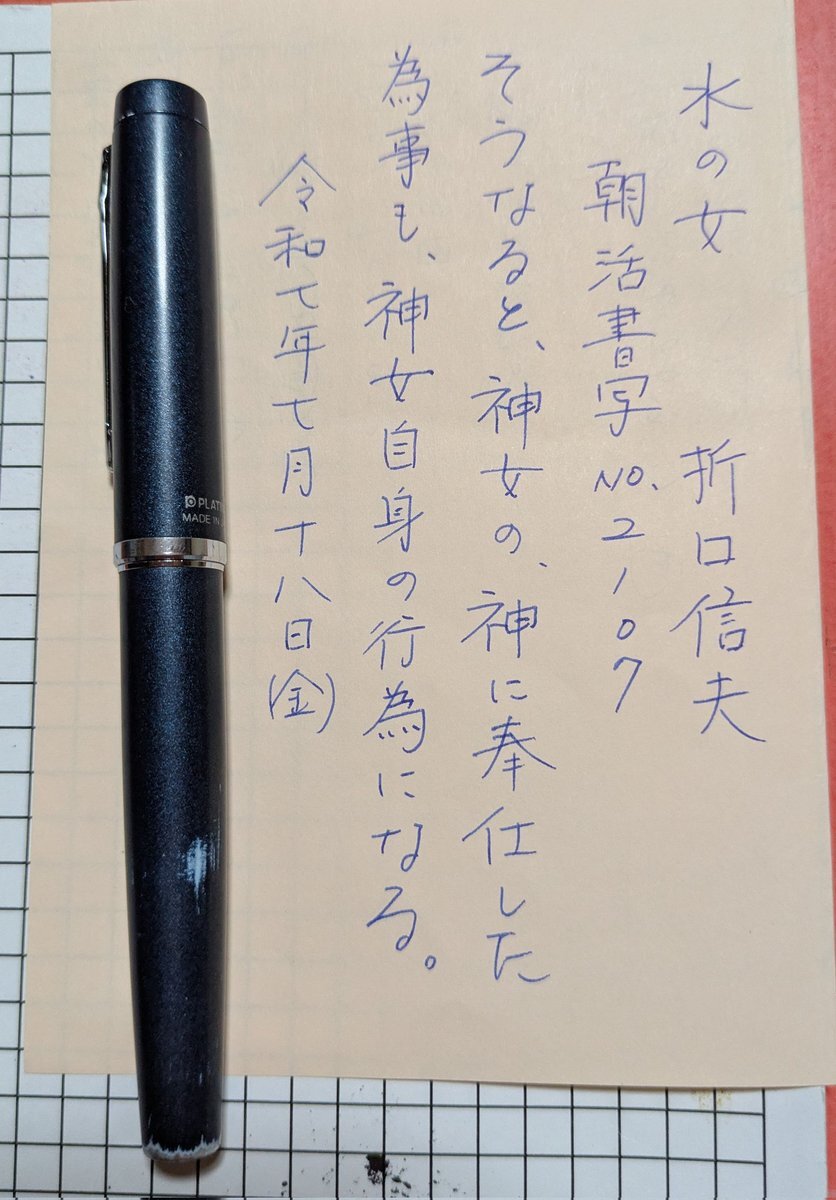 水の女 折口信夫
朝活書写 No.2107
そうなると、神女の、神に奉仕した
為事も、神女自身の行為になる。
令和七年七月十八日(金)
PLAT
MADE IN